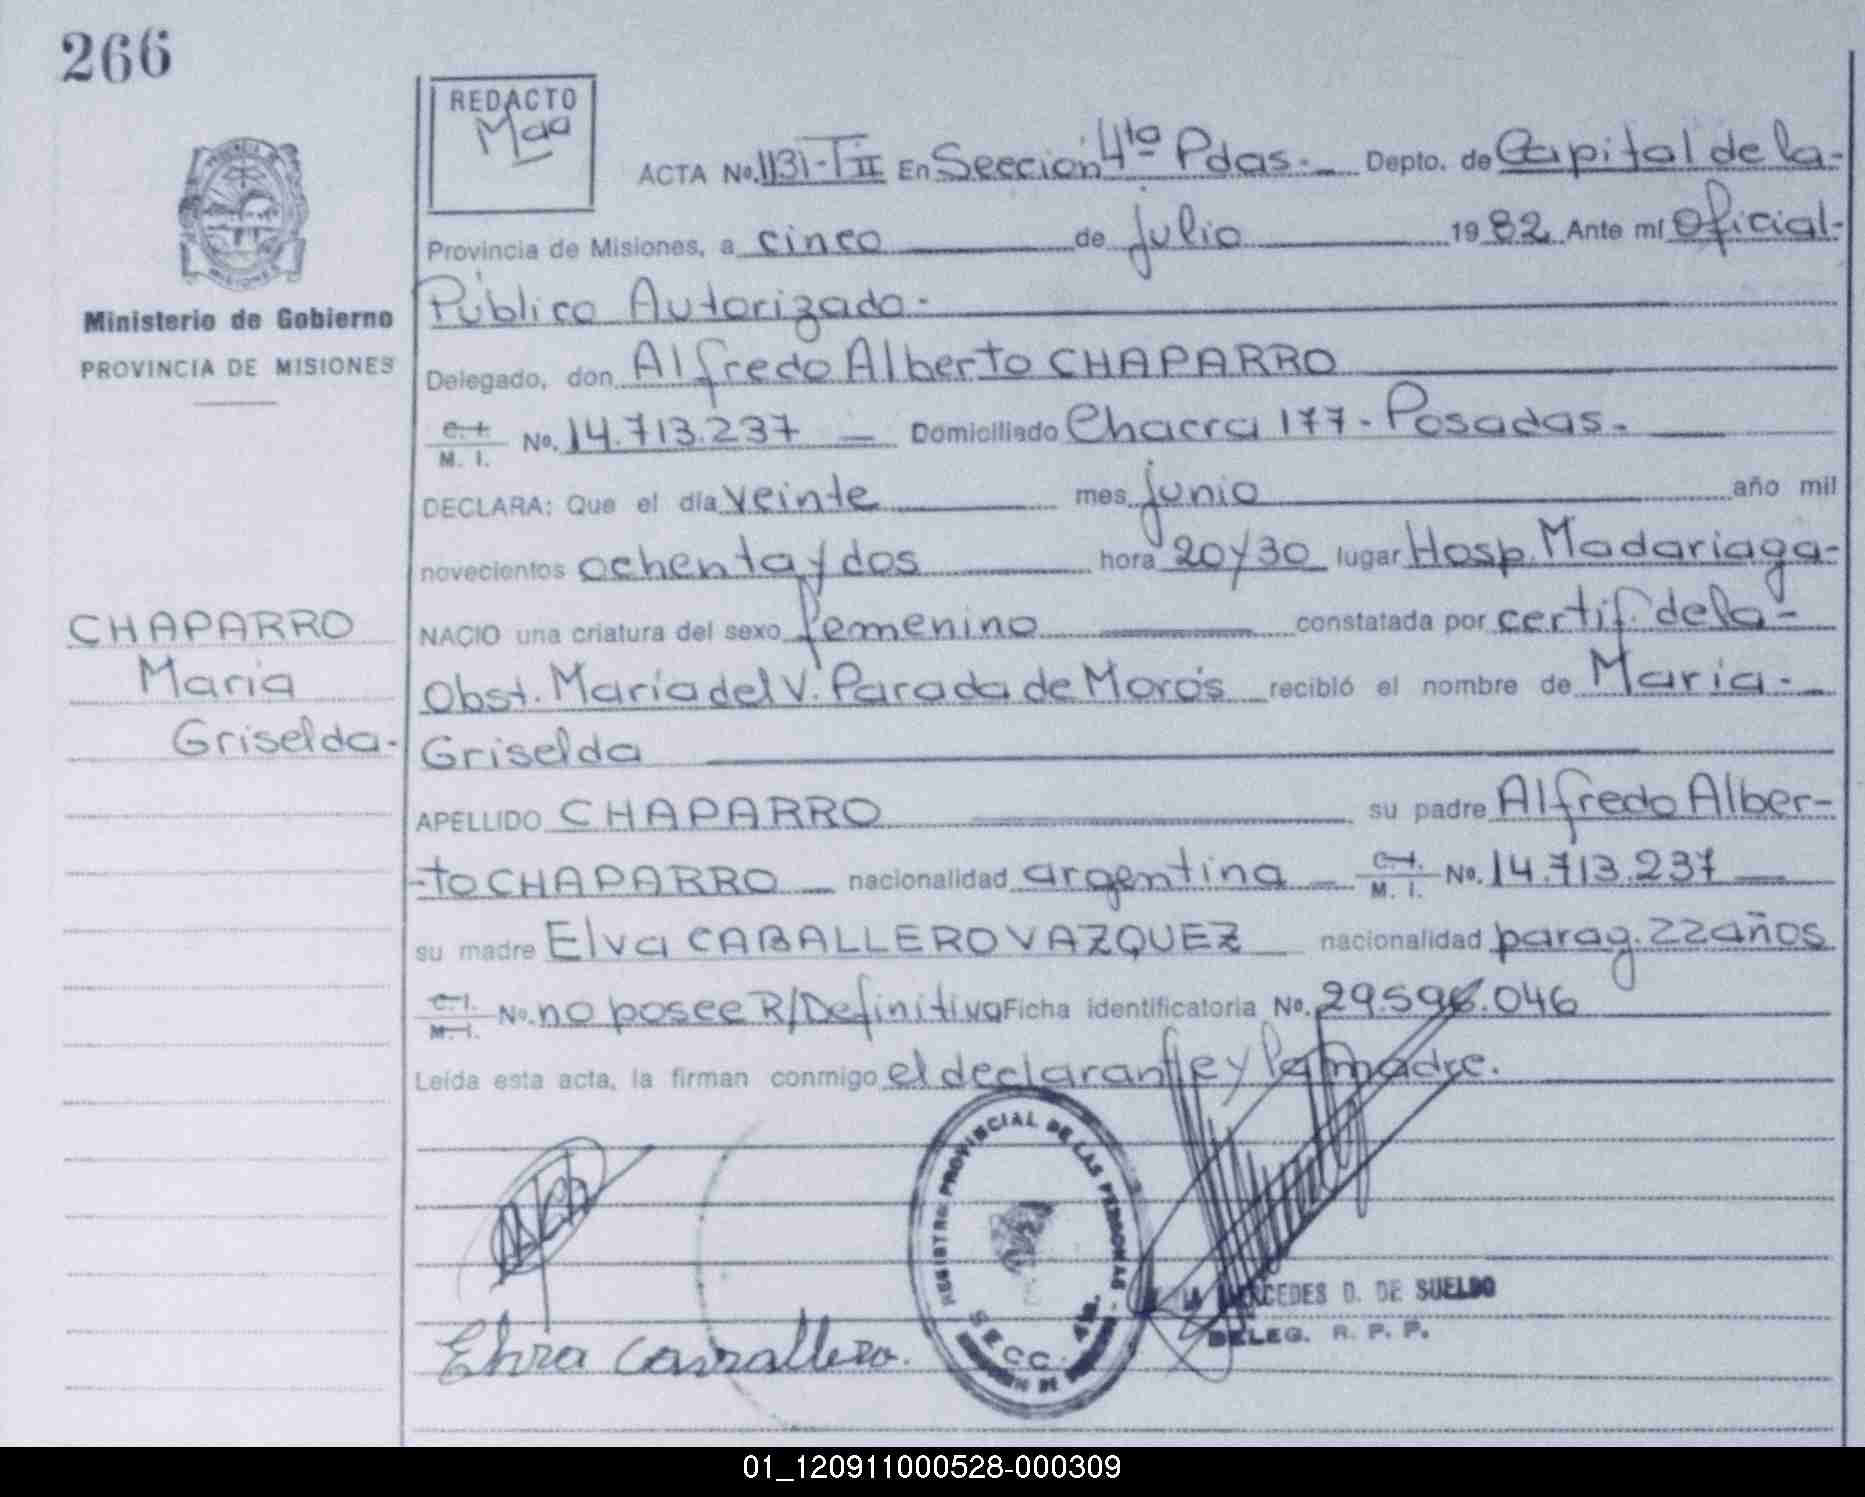 266
REDACTO
Maa
ACTA No. 1131-T II En Sección 4ta Pdas.- Depto. de Capital de la-
Provincia de Misiones, a cinco de julio 1982 Ante mí Oficial-
Público Autorizado.-
Delegado, don Alfredo Alberto CHAPARRO
C.I. M. I. No. 14.713.237 — Domiciliado Chacra 177 - Posadas.-
DECLARA: Que el día veinte mes junio año mil
novecientos ochenta y dos hora 20 y 30 lugar Hosp. Madariaga-
NACIO una criatura del sexo femenino constatada por certif. de la-
Obst. María del V. Parada de Morós recibió el nombre de María-
Griselda
APELLIDO CHAPARRO su padre Alfredo Alber-
-to CHAPARRO nacionalidad argentina — C.I. M. I. No. 14.713.237
su madre Elva CABALLERO VAZQUEZ nacionalidad parag. 22 años
C.I. M.I. No. no posee R/Definitiva Ficha identificatoria No. 29.596.046
Leída esta acta, la firman conmigo el declarante y la madre.
PROVINCIA DE
MISIONES
Ministerio de Gobierno
PROVINCIA DE MISIONES
CHAPARRO
María
Griselda.-
REGISTRO PROVINCIAL DE LAS PERSONAS
SECC. 4ta.
MERCEDES D. DE SUELDO
DELEG. R. P. P.
01_120911000528-000309